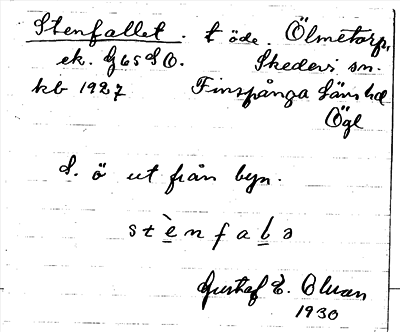 Stenfallet. t öde. Ölmetorp,
ek. G65 d O. Skedevi sn.
kb 1927 Finspånga läns hd
Ögl
S. ö ut från byn.
stènfala
Gustaf E. Eluan
1930